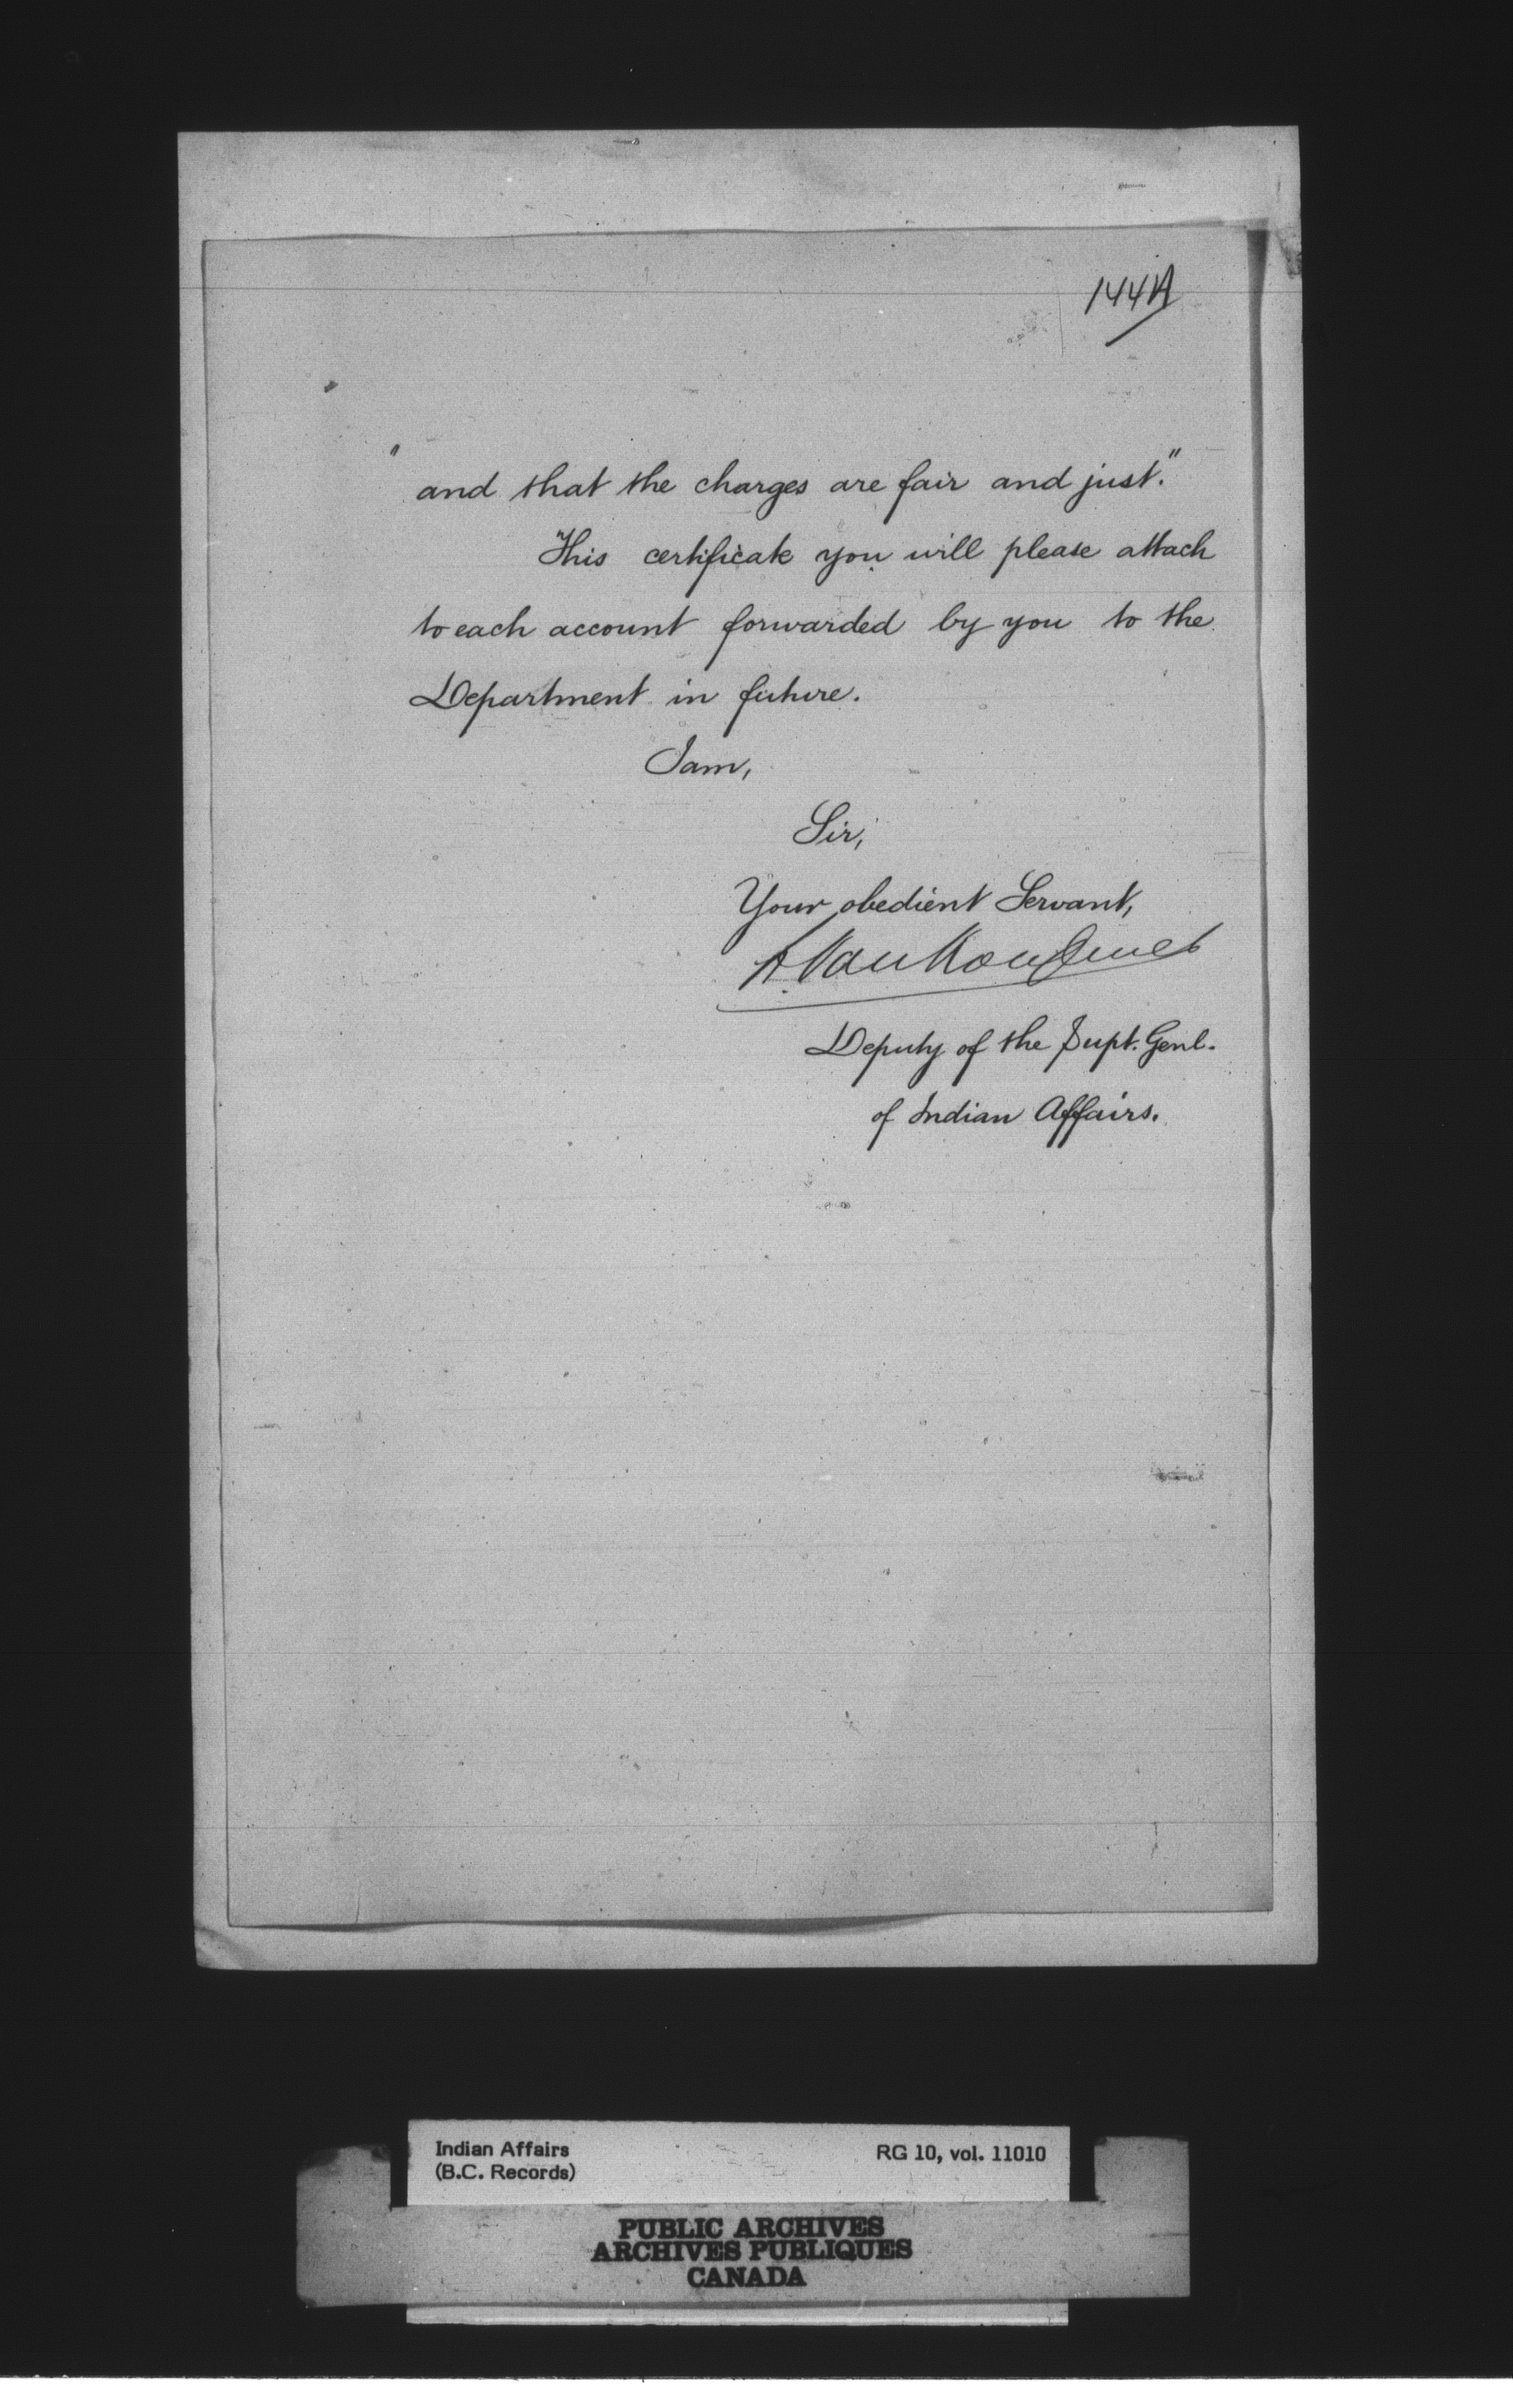 144A
"and that the charges are fair and just."
This certificate you will please attach
to each account forwarded by you to the
Department in future.
I am,
Sir,
Your obedient Servant,
L. Vankoughnet
Deputy of the Supt. Genl.
of Indian Affairs.
Indian Affairs RG 10, vol. 11010
(B.C. Records)
PUBLIC ARCHIVES
ARCHIVES PUBLIQUES
CANADA